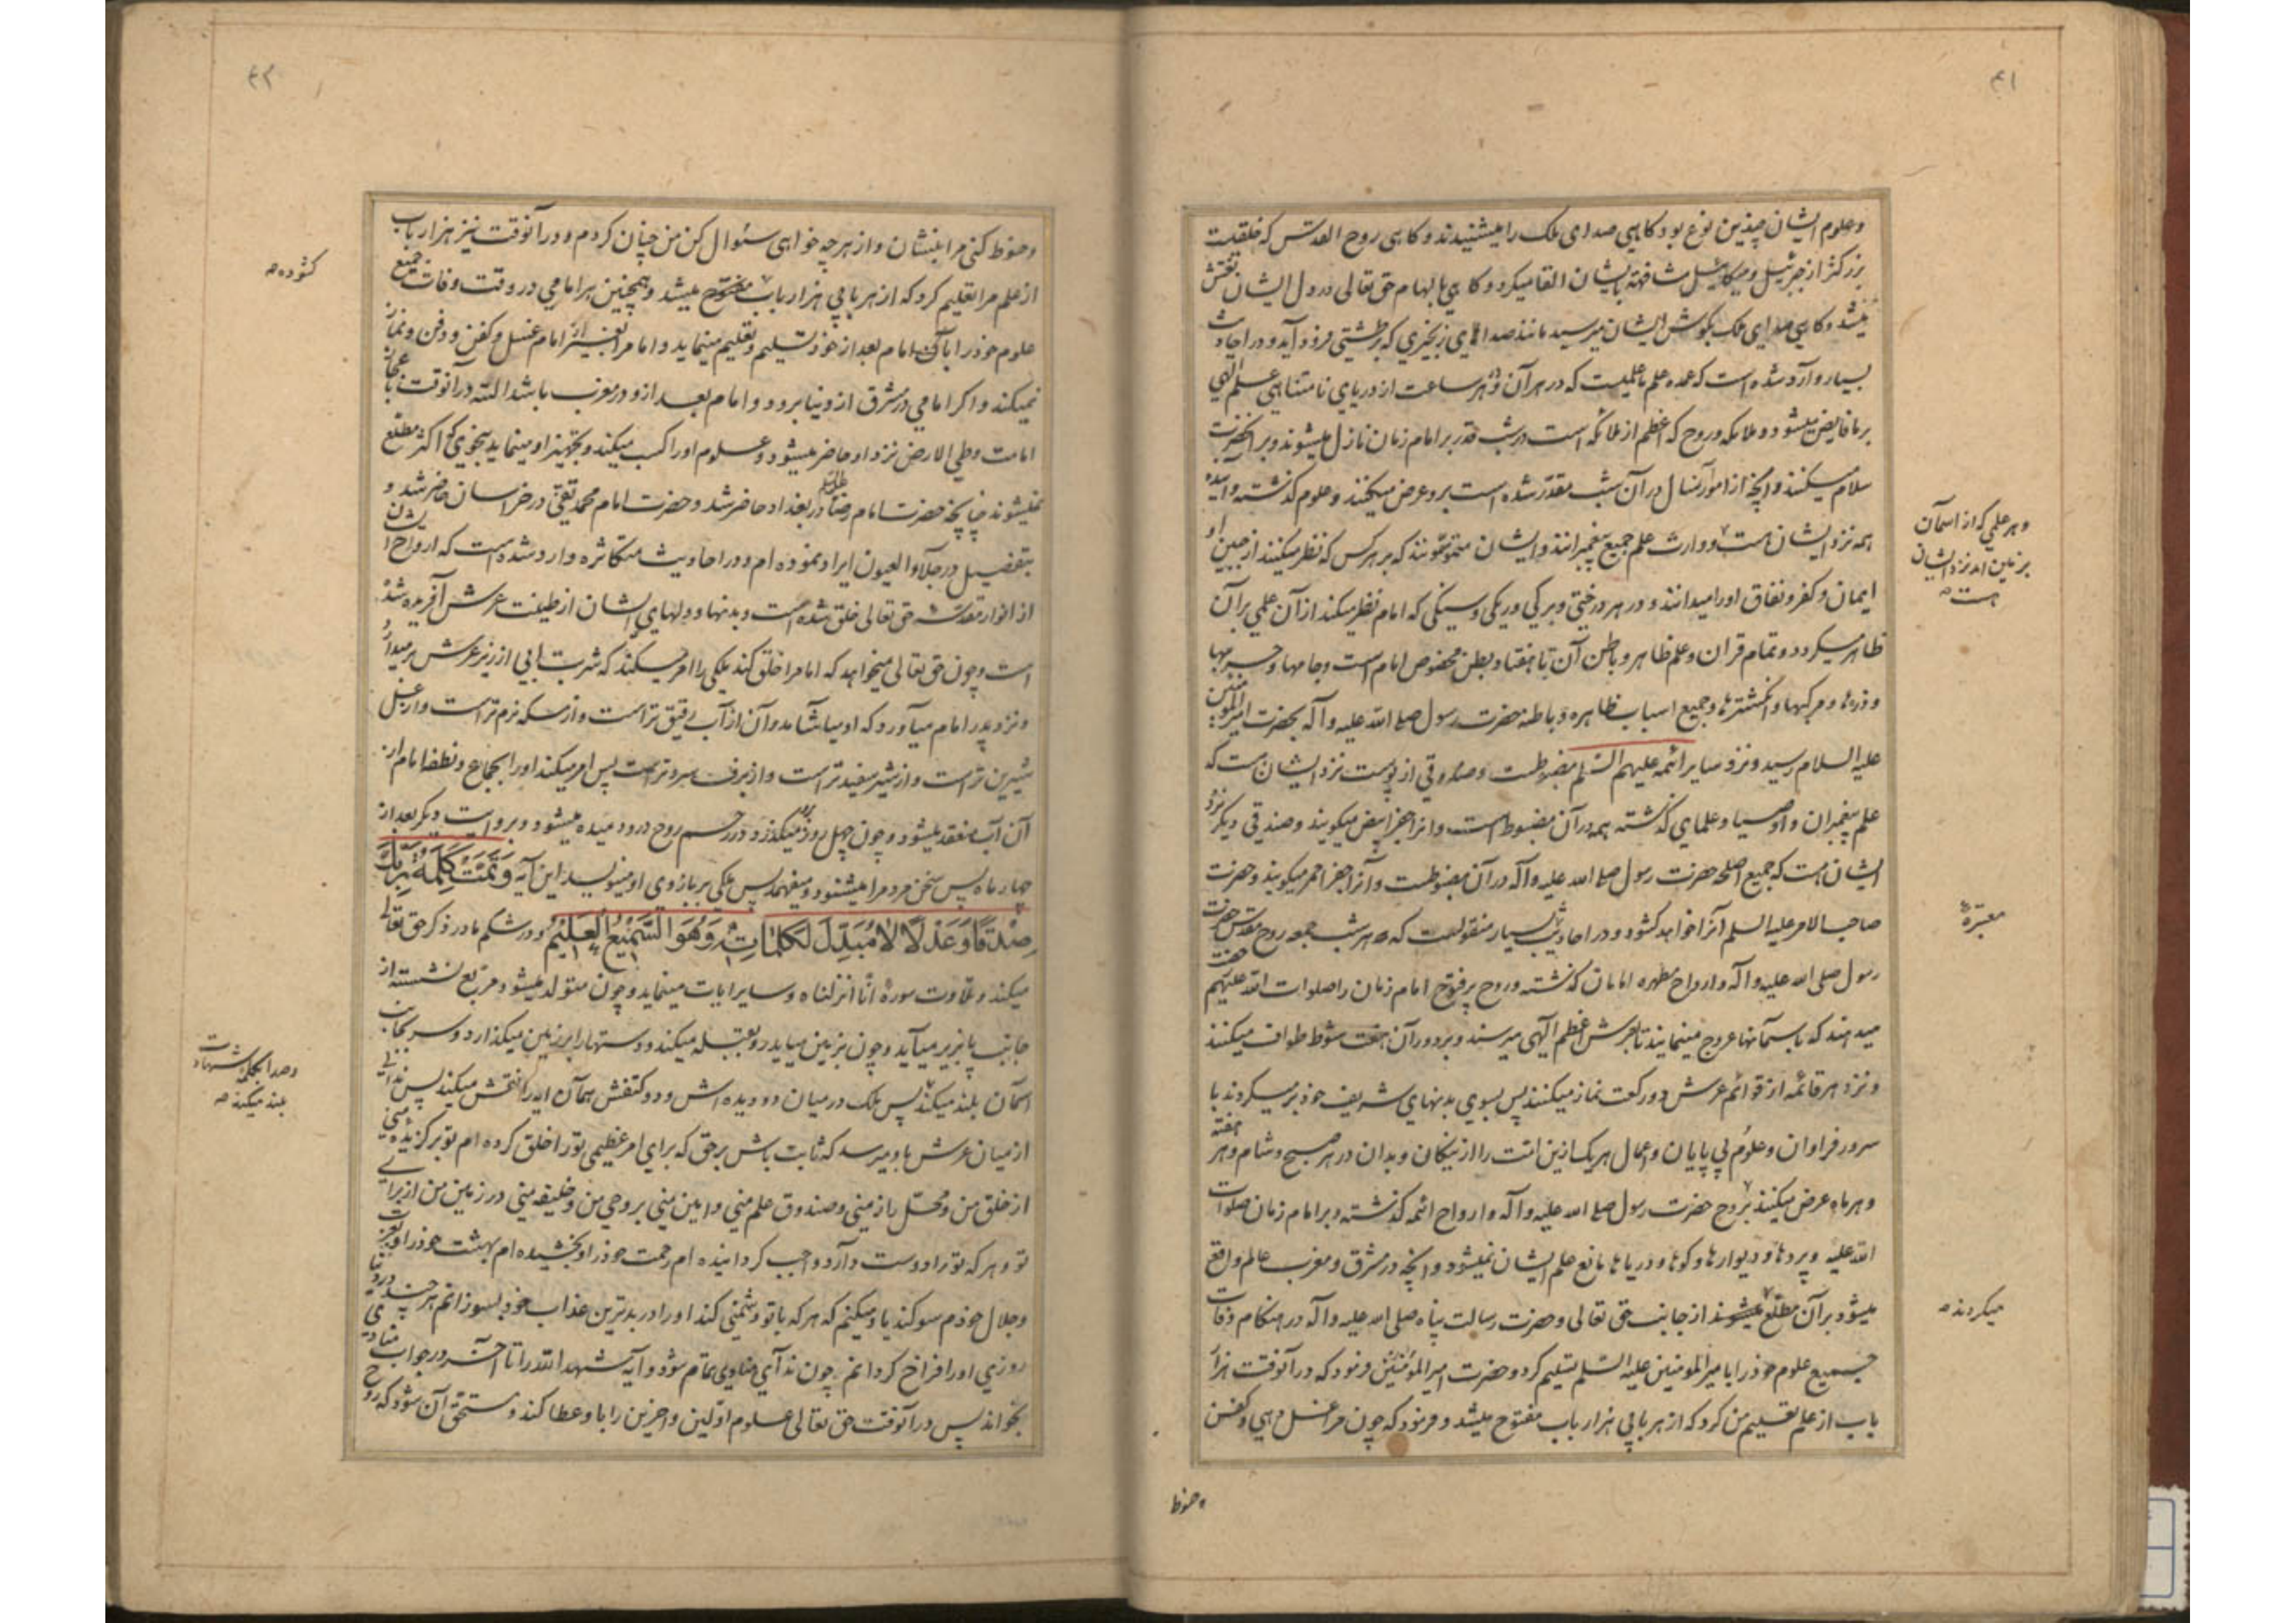 ۴۱
و علوم ایشان چندین نوع بود کاهی صدای ملک را میشنیدند و کاهی روح القدس که خلقیت
بزرکتر از جبرئیل و میکائیل مشافهة بایشان القا میکرد و کاهی بالهام حق تعالی در دل ایشان نقش
میشد و کاهی صدای ملک بکوش ایشان میرسید مانند صدای زنجیری که بر طشتی فرود آید و در احادیث
بسیار وارد شده است که عمده علم ما علمیست که در هر آن و هر ساعت از دریای نامتناهی علم الهی
بر ما فایض میشود و ملائکه و روح که اعظم از ملائکه است در شب قدر بر امام زمان نازل میشوند و بر آنحضرت
سلام میکنند و آنچه از امور آنسال در آن شب مقدّر شده است برو عرض میکنند و علوم کذشته و آینده
همه نزد ایشان هست و وارث علم جمیع پیغمبرانند و ایشان متوسّمونند که بر هر کس که نظر میکنند از جبین او
وهر علمی که از اسمان
بزمین امد نزد ایشان
هست
ایمان و کفر و نفاق او را میدانند و در هر درختی و برکی و ریکی و سنکی که امام نظر میکند از آن علمی بر آن
ظاهر میکردد و تمام قران و علم ظاهر و باطن آن تا هفتاد بطن مخصوص امام است و جامها و حربها
و زرهها و مرکبها و انکشترها و جمیع اسباب ظاهره و باطنه حضرت رسول صلی الله علیه و آله بحضرت امیر المومنین
علیه السلام رسید و نزد سایر ائمه علیهم السّلم مضبوطست و صندوقی از پوست نزد ایشان هست که
علم پیغمبران و اوصیا و علمای کذشته همه در آن مضبوط است و انرا جفر ابیض میکویند و صندوقی دیکر نزد
ایشان هست که جمیع اسلحه حضرت رسول صلی الله علیه و آله در آن مضبوطست و آنرا جفر احمر میکویند و حضرت
صاحب الامر علیه السلم آنرا خواهد کشود و در احادیث بسیار منقولست که هر شب جمعه روح مقدس حضرت
معتبره
رسول صلی الله علیه و آله و ارواح مطهره امامان کذشته و روح پرفتوح امام زمان را صلوات الله علیهم
میدهند که باسمانها عروج مینمایند تا بعرش اعظم الهی میرسند و بر دور آن هفت شوط طواف میکنند
و نزد هر قائمه از قوائم عرش دو رکعت نماز میکنند پس بسوی بدنهای شریف خود برمیکردند با
سرور فراوان و علوم بی پایان و اعمال هر یک ازین امّت را از نیکان و بدان در هر صبح و شام و هر هفته
و هر ماه عرض میکنند بروح حضرت رسول صلی الله علیه و آله و ارواح ائمه کذشته و بر امام زمان صلوات
الله علیه و پردها و دیوارها و کوهها و دریاها مانع علم ایشان نمیشود و انچه در مشرق و مغرب عالم واقع
میشود بر آن مطّلع میشوند از جانب حق تعالی و حضرت رسالت پناه صلی الله علیه و آله در هنکام وفات
میکردند
جمیع علوم خود را بامیر المومنین علیه السّلم تسلیم کرد و حضرت امیر المؤمنین فرمود که در آنوقت هزار
باب از علم تعلیم من کرد که از هر بابی هزار باب مفتوح میشد و فرمود که چون مرا غسل دهی و کفن
و حنوط
۴۲
و حنوط کنی مرا بنشان و از هر چه خواهی سئوال کن من چنان کردم و در آنوقت نیز هزار باب
از علم مرا تعلیم کرد که از هر بابی هزار باب مفتوح میشد و همچنین هر امامی در وقت وفات جمیع
کشوده
علوم خود را بآن امام بعد از خود تسلیم و تعلیم مینماید و امام را بغیر از امام غسل و کفن و دفن و نماز
نمیکند و اکر امامی در مشرق از دنیا برود و امام بعد از و در مغرب باشد البته در آنوقت باعجاز
امامت و طی الارض نزد او حاضر میشود و علوم او را کسب میکند و تجهیز او مینماید بنحوی که اکثر مطلع
نمیشوند چنانچه حضرت امام رضا در بغداد حاضر شد و حضرت امام محمد تقی در خراسان حاضر شد و
بتفصیل در جلاء العیون ایراد نموده ام و در احادیث متکاثره وارد شده است که ارواح ایشان
از انوار مقدّسه حق تعالی خلق شده است و بدنها و دلهای ایشان از طینت عرش آفریده شده
است و چون حق تعالی میخواهد که امام را خلق کند ملکی را امر میکند که شربت آبی از زیر عرش برمیدارد
و نزد پدر امام میآورد که او میاشامد و آن از آب رقیق تر است و از مسکه نرم تر است و از عسل
شیرین تر است و از شیر سفید تر است و از برف سرد تر است پس امر میکند او را بجماع و نطفه امام از
آن آب منعقد میشود و چون چهل روز میکذرد در رحم روح درو دمیده میشود و بروایت دیکر بعد از
چهار ماه پس سخن مردم را میشنود و میفهمد پس ملکی بر بازوی او مینویسد این آیه وَتَمَّتْ كَلِمَةُ رَبِّكَ
صِدْقًا وَعَدْلًا لَا مُبَدِّلَ لِكَلِمَاتِهِ وَهُوَ السَّمِيعُ الْعَلِيمُ و در شکم مادر ذکر حق تعالی
میکند و تلاوت سورهٔ انّا انزلناه و سایر ایات مینماید و چون متولد میشود مربّع نشسته از
جانب پا بزیر میآید و چون بزمین میاید رو بقبله میکند و دستها را بر زمین میکذارد و سر بجانب
اسمان بلند میکند پس ملک در میان دو دیده اش و دو کتفش همان ایه را نقش میکند پس ندائی
و صدا بکلمه شهادت
بلند میکند
از میان عرش باو میرسد که ثابت باش بر حق که برای امر عظیمی تو را خلق کرده ام تو برکزیده منی
از خلق من و محل راز منی و صندوق علم منی و امین منی بر وحی من و خلیفه منی در زمین من از برای
تو و هر که تو را دوست دارد واجب کردانیده ام رحمت خود را و بخشیده ام بهشت خود را و بعزت
و جلال خودم سوکند یاد میکنم که هر که با تو دشمنی کند او را در بدترین عذاب خود بسوزانم هر چند در دنیا
روزی او را فراخ کردانم چون ندای منادی تمام شود آیه شهد الله را تا اخر در جواب منادی
بخواند پس در آنوقت حق تعالی علوم اوّلین و اخرین را باو عطا کند و مستحق آن شود که روح